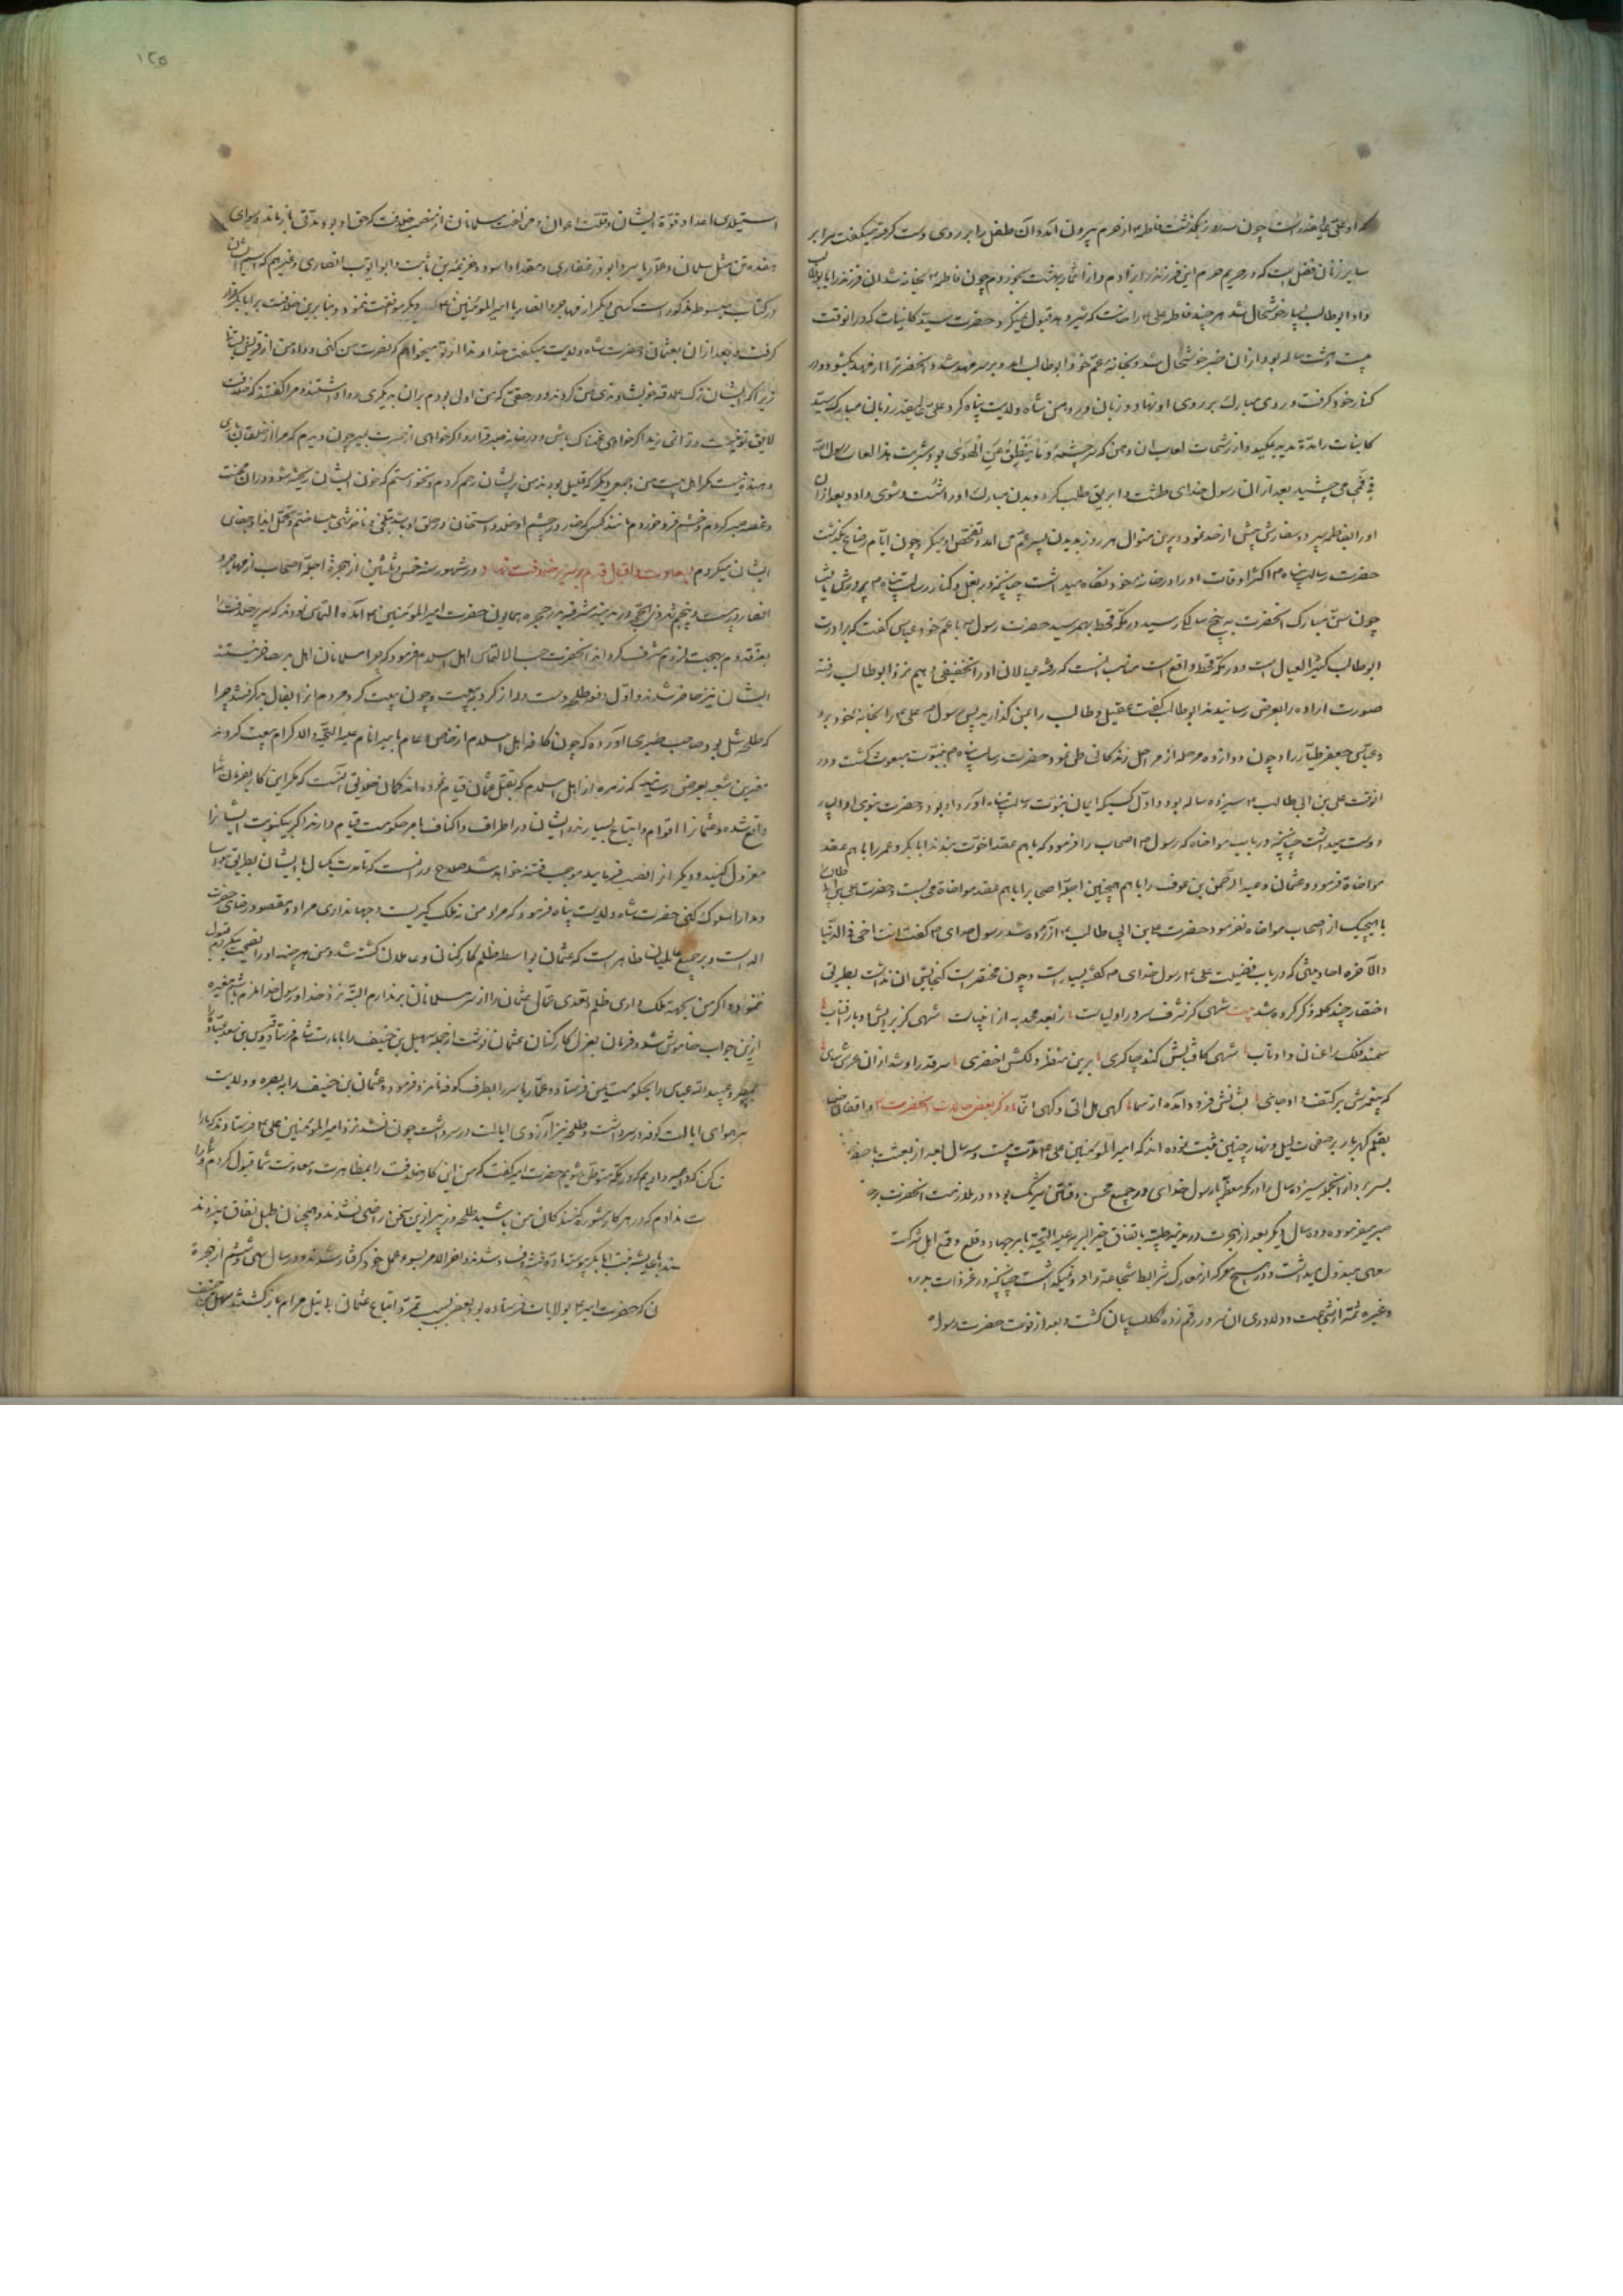 که او علی اعلی خداست چون سه روز بگذشت فاطمه از حرم بیرون آمد و آن طفل را بر روی دست گرفته میگفت مرا بر
سایر زنان فضل است که در حریم حرم این فرزند را زادم و از اثمار بهشت بخوردم چون فاطمه بخانه شد آن فرزند را بابوطالب
داد ابوطالب بسیار خوشحال شد هر چند فاطمه علی را خواست که شیر دهد قبول نمیکرد حضرت سید کاینات که در آنوقت
بیست و هشت ساله بود از آن خبر خوشحال شد و بخانه عم خود ابوطالب آمد و بر سر مهد شد و آنحضرت را از مهد بگشود و در
کنار خود گرفت و روی مبارک بر روی او نهاد و زبان در دهن شاه ولایت پناه کرد علی مرتضی زبان مبارک سید
کاینات را مدة مدید بمکید و از رشحات لعاب آن دهن که سرچشمه و ما ینطق عن الهوی بود شربت هذا لعاب رسول الله
فی فمی چشید بعد از آن رسول خدای طشت و ابریق طلب کرد و بدن مبارک او را شست و شوی داد و بعد از آن
او را بفاطمه سپرد و سفارش بیش از حد نمود و برین منوال هر روز بدیدن پسر عم می آمد و تفحص او میکرد چون ایام رضاع بگذشت
حضرت رسالت پناه اکثر اوقات او را در خانه خود نگاه میداشت چنانچه در بغل و کنار رسالت پناه پرورش یافت
چون سن مبارک آنحضرت به پنج سالگی رسید در مکه قحط بهم رسید حضرت رسول با عم خود عباس گفت که برادرت
ابوطالب کثیر العیال است و در مکه قحط واقع است مناسب آنست که رفته عیالان او را تخفیفی دهیم نزد ابوطالب رفته
صورت اراده را بعرض رسانیدند ابوطالب گفت عقیل و طالب را بمن گذارید پس رسول علی را بخانه خود برد
و عباس جعفر طیار را و چون دوازده مرحله از مراحل زندگانی طی نمود حضرت رسالت پناه بنبوت مبعوث گشت و در
آنوقت علی بن ابی طالب سیزده ساله بود و اول کسیکه ایمان بنبوت رسالت پناه آورد او بود حضرت نبوی او را بسیار
دوست میداشت چنانچه در باب مواخاه که رسول اصحاب را فرمود که با هم عقد اخوت بندند ابابکر و عمر را با هم عقد
مواخاة فرمود و عثمان و عبد الرحمن بن عوف را با هم همچنین اجله اصحاب را با هم عقد مواخاة می بست و حضرت علی بن ابی طالب را
با هیچیک از اصحاب مواخاه نفرمود حضرت علی بن ابی طالب آزرده شد رسول خدای گفت انت اخی فی الدنیا
و الآخره احادیثی که در باب فضیلت علی رسول خدای گفته بسیار است و چون مختصر است گنجایش آن نداشت بطریق
اختصار چند کلمه ذکر کرده شد بیت شهی کز شرف سرور اولیاست ز بعد محمد به از انبیاست شهی کز برایش دوباره آفتاب
سمند فلک را عنان داد تاب شهی کافتابش کند چاکری برین منظر دلکش اخضری سر قدر او شد از آن عرش سای
که پیغمبرش بر کتف داد جای بشانش فرود آمده از سما گهی هل اتی و گهی انما ذکر بعض حالات آنحضرت
بقلم گهربار بر صفحات لیل و نهار چنین ثبت نموده اند که امیر المؤمنین علی مدت بیست و سه سال بعد از بعثت با حضرت
بسر برد از آنجمله سیزده سال در مکه معظمه با رسول خدای در جمیع محن و فاقت شریک بود و در ملازمت آنحضرت بر
صبر میفرموده و ده سال دیگر بعد از هجرت در مدینه طیبه باتفاق خیر البریه علیه التحیة بامر جهاد و قلع و قمع اهل شرکت
سعی مبذول میداشت و در هیچ معرکه از معارک شرایط شجاعة فرو نمیگذاشت چنانچه در غزوات بدر
و غیره شمه از شجاعت و دلاوری آن سرور رقم زده کلک بیان گشت و بعد از فوت حضرت رسول
استیلای اعدا و قوة ایشان و قلت اعوان و مناخت مسلمانان از منصب خلافت که حق او بود مدتی باز ماند و سوای
هفده تن مثل سلمان و عمار یاسر و ابو ذر غفاری و مقداد اسود و خزیمه بن ثابت و ابو ایوب انصاری و غیرهم که اسم ایشان
در کتاب مبسوط مذکور است کسی دیگر از مهاجر و انصار با امیر المؤمنین دیگر موافقت ننمود و بنابرین خلافت بر ابابکر قرار
گرفت و بعد از آن بعثمان و حضرت شاه ولایت میگفت خداوندا از تو میخواهم که نصرت من کنی و داد من از قریش بستان
زیرا که ایشان ترک علاقه خویشاوندی من کردند و در حقی که من اولی بودم بر آن بدیگری روا داشتند و مرا گفتند که خلافت
لایق تو نیست و توانی زیست اگر خواهی غمناک باش و در خانه صبر قرار و اگر خواهی از حسرت بمیر چون دیدم که مرا از خلقان یاری
دهنده نیست مگر اهل بیت من و جمعی دیگر که قلیل بودند من بریشان رحم کردم و نخواستم که خون ایشان ریخته شود و در آن محنت
و غصه صبر کردم و خشم فرو خوردم مانند کسی که خار در چشم او خلد و استخوان در حلق او باشد بتلخی و ناخوشی می ساختم و تحمل ایذا و جفای
ایشان میکردم سعادت و اقبال قدم بر سریر خلافت نهاد در شهور سنه خمس و ثلثین از هجرة اجله اصحاب از مهاجر و
انصار در بیست و پنجم شهر ذی الحجه در مدینه مشرفه بدر حجره همایون حضرت امیر المؤمنین آمده التماس نمودند که سریر خلافت را
بمقدم بهجت لزوم مشرف گرداند آنحضرت حسب الالتماس اهل اسلام فرمود که جمیع مسلمانان اهل مدینه حاضر نیستند
ایشان نیز حاضر شدند و اول دفعه طلحه دست دراز کرد و بیعت و چون بیعت کرد مردم ابراز فال بد گرفتند چرا
که طلحه شل بود صاحب طبری آورده که چون کافه اهل اسلام از خاص و عام با میر انام علیه التحیة و الاکرام بیعت کردند
مغیره بن شعبه بعرض رسانید که زمره از اهل اسلام که بقتل عثمان قیام نموده اند گمان خلایق آنست که مگر این کار بفرمان شما
واقع شده و عثمان را اقوام و اتباع بسیارند و ایشان در اطراف و اکناف بامر حکومت قیام دارند اگر بیکنوبت ایشانرا
معزول کنید و دیگر انرا نصب فرمایید موجب فتنه خواهد شد صلاح در آنست که تا مدت یکسال با ایشان بطریق مواسا
و مدارا سلوک کنی حضرت شاه ولایت پناه فرمود که مراد من نه ملک گیریست و جهانداری مراد و مقصود رضای حضرت
اله است و بر جمیع عالمیان ظاهر است که عثمان بواسطه ظلم کارکنان و عاملان کشته شد و من هر چند او را نصیحت میکردم قبول
ننمود و اگر من بجهة ملک داری ظلم و تعدی عمال عثمان را از سر مسلمانان بر ندارم البته نزد خدا و رسول خدا ملزم باشم مغیره
ازین جواب خاموش شد و فرمان بعزل کارکنان عثمان نوشت از جمله سهیل بن حنیف را بامارت شام فرستاد و قیس بن سعد عباده را
بمصر و عبید الله عباس را بحکومت یمن فرستاد و عمار یاسر را بطرف کوفه نامزد فرمود و عثمان بن حنیف را به بصره و ولایت
هوای ایالت کوفه در سر داشت و طلحه نیز آرزوی ایالت در سر داشت چون نشد نزد امیر المؤمنین علی فرستادند که ما را
حضرت امیر گفت که من این کار خلافت را بمظاهرت و معاونت شما قبول کردم و شما را
ت ندادم که در هر کار مشورة کنند کان من باشید طلحه و زبیر ازین سخن راضی نشدند و همچنان طبل نفاق میزدند
بعایشه بنت ابابکر پیوسته ماده فتنه و فساد شدند و آخر الامر بسوء عمل خود گرفتار شدند و در سال سی و ششم از هجرة
ن که حضرت امیر بولایات فرستاده بود بعضی بسبب تمرد اتباع عثمان بی نیل مرام باز گشتند سهیل بن حنیف